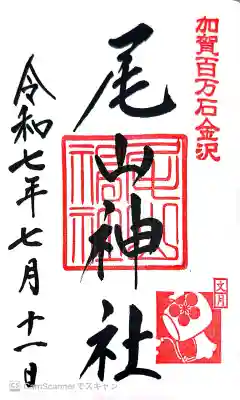 加賀百万石金沢
尾山神社
尾山神社
文月
令和七年七月十一日
CS CamScannerでスキャン